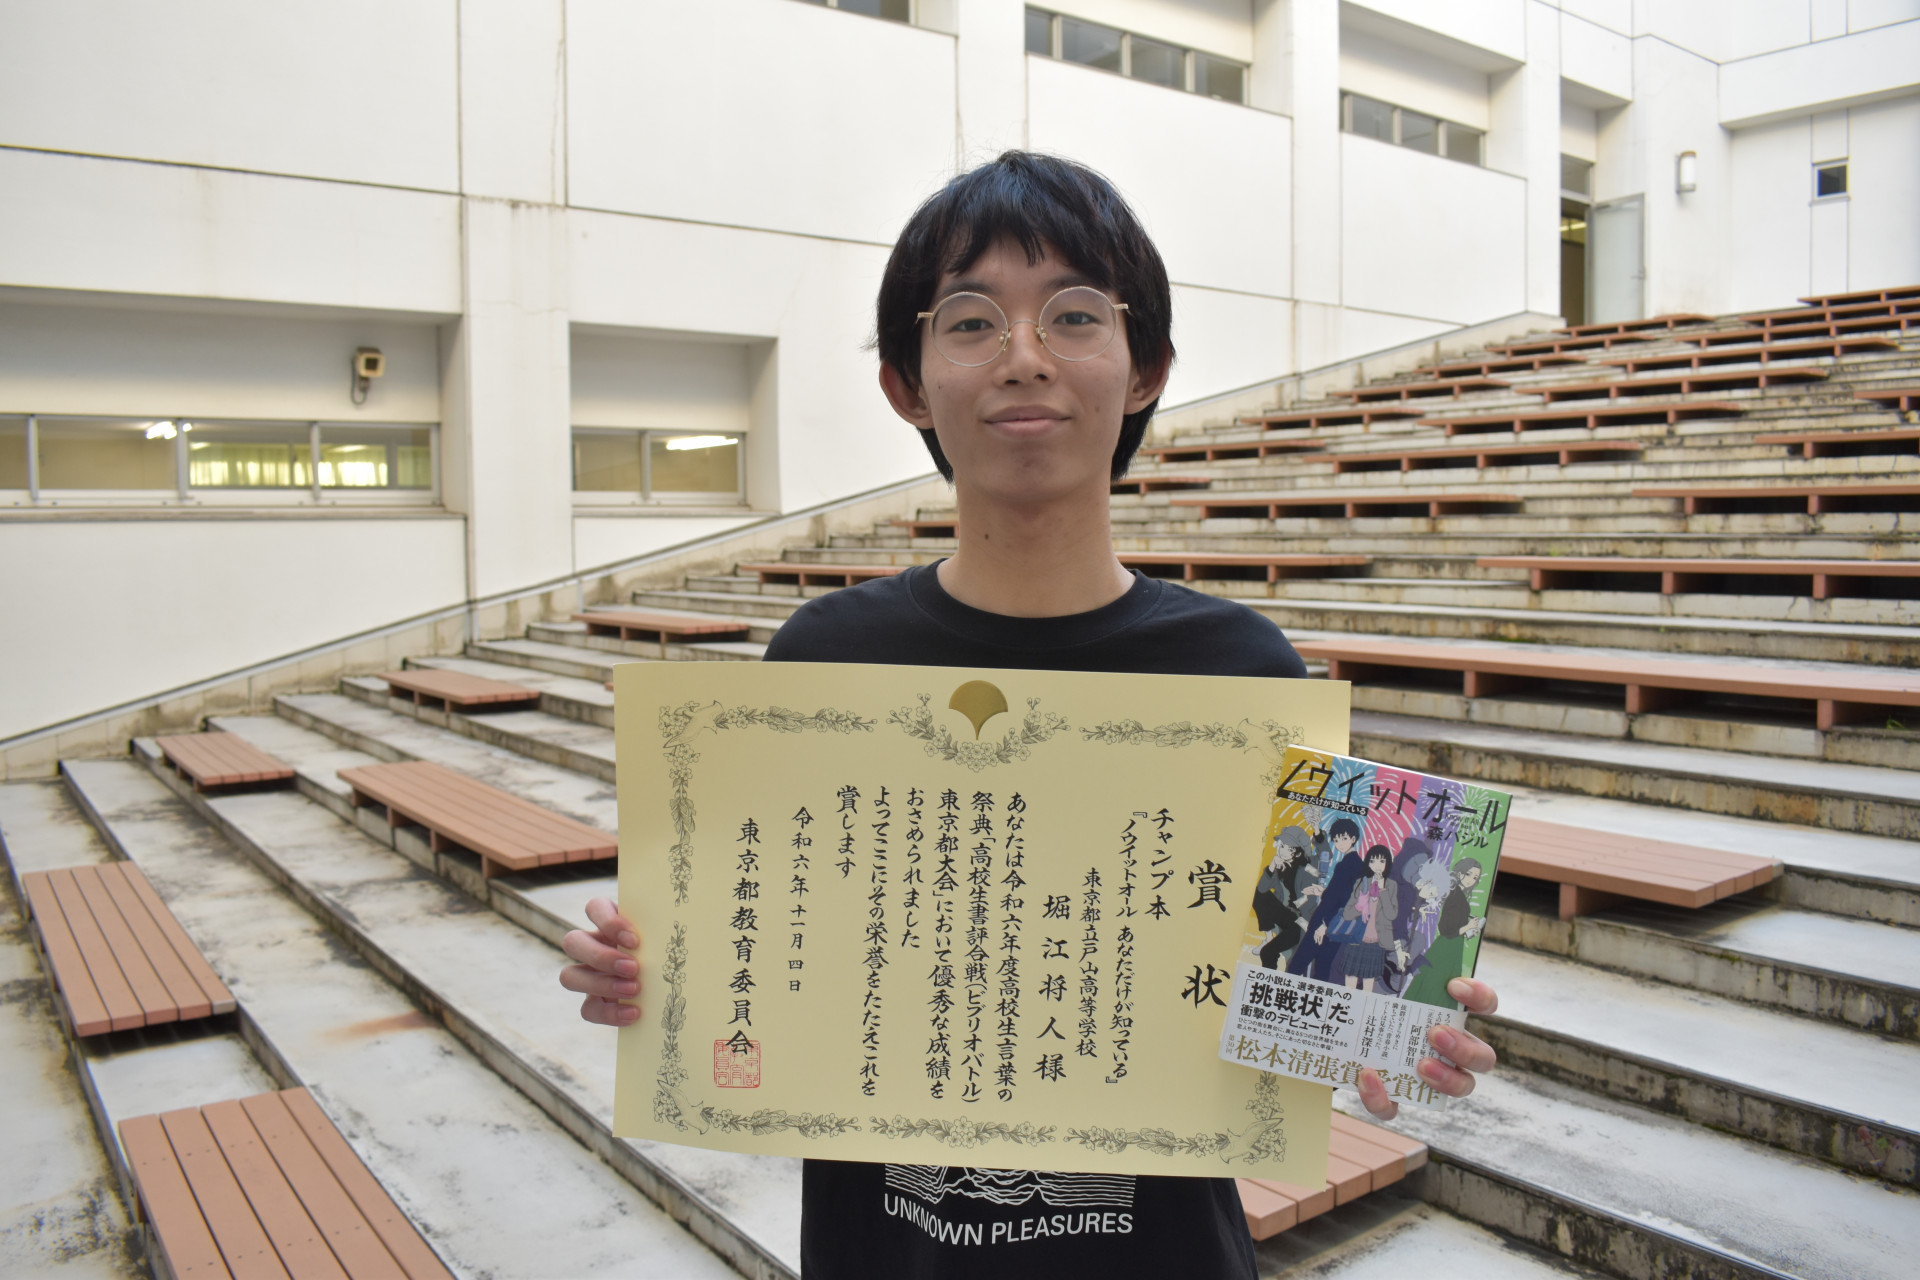 賞状
チャンプ本
『ノウイットオール あなただけが知っている』
東京都立戸山高等学校
堀江将人様
あなたは令和六年度高校生言葉の
祭典「高校生書評合戦(ビブリオバトル)
東京都大会」において優秀な成績を
おさめられました
よってここにその栄誉をたたえこれを
賞します
令和六年十一月四日
東京都教育委員会
ノウイットオール
あなただけが知っている
森バジル
この小説は、選考委員への
「挑戦状」だ。
衝撃のデビュー作!
辻村深月
阿部智里
松本清張賞受賞作
UNKNOWN PLEASURES